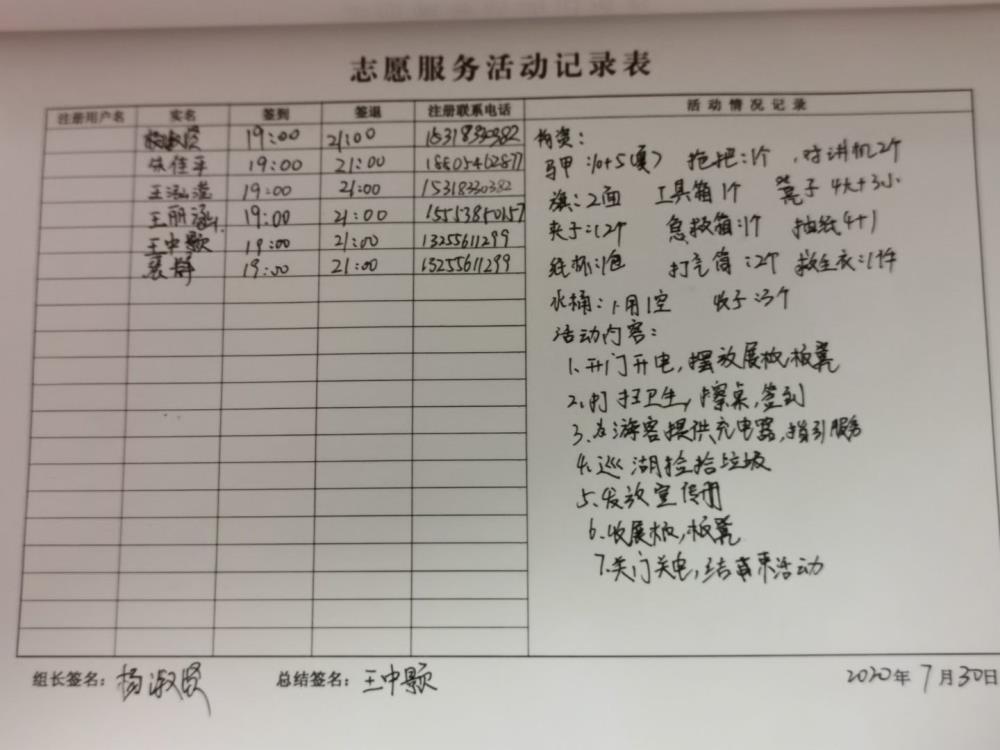 志愿服务活动记录表
注册用户名 实名 签到 签退 注册联系电话 活动情况记录
杨淑贤 19:00 21:00 15318330382
佳平 19:00 21:00 18605462877
王泓滢 19:00 21:00 15318330382
王丽涵 19:00 21:00 15553850157
王中颢 19:00 21:00 13255611299
19:00 21:00 13255611299
物资:
马甲:10+5(夏) 拖把:1个 对讲机2个
旗:2面 工具箱1个 凳子4大+3小
夹子:12个 急救箱:1个 抽纸4+1
纸杯:1包 打气筒:2个 救生衣:11件
水桶:1用1空 收子:3个
活动内容:
1.开门开电,摆放展板,板凳
2.打扫卫生,擦桌,签到
3.为游客提供充电器,指引服务
4.巡湖捡拾垃圾
5.发放宣传册
6.收展板,板凳
7.关门关电,结束活动
组长签名:杨淑贤 总结签名:王中颢 2020年7月30日